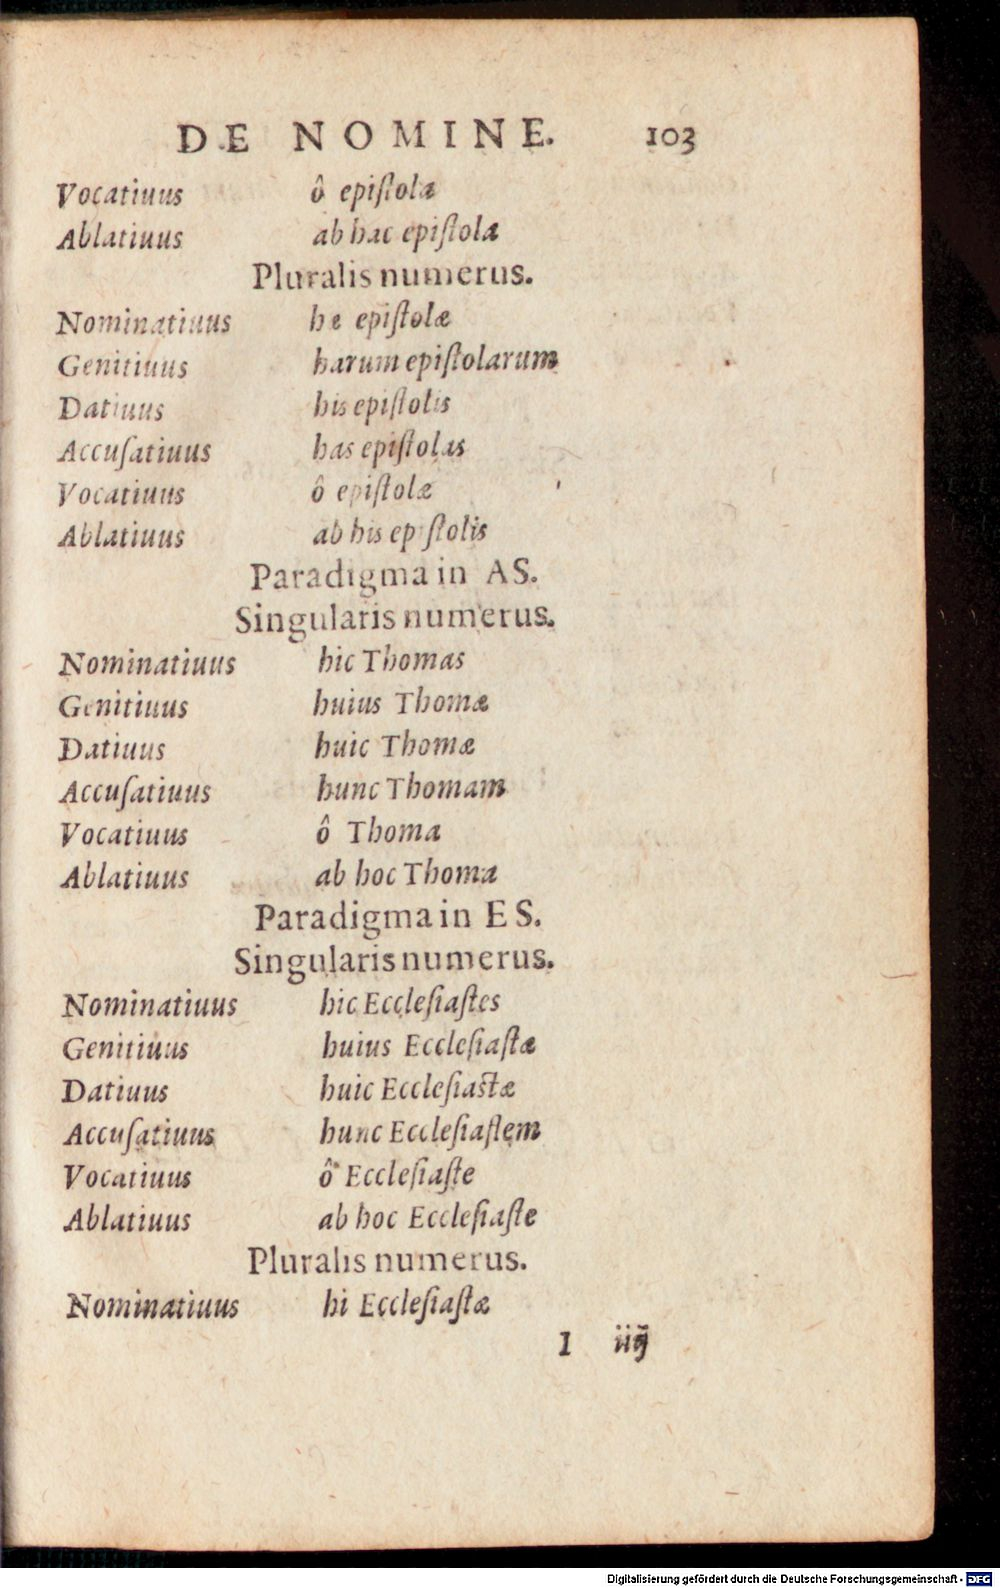 DE NOMINE. 103
Vocatiuus ô epiſtola
Ablatiuus ab hac epiſtola
Pluralis numerus.
Nominatiuus hæ epiſtolæ
Genitiuus harum epiſtolarum
Datiuus his epiſtolis
Accuſatiuus has epiſtolas
Vocatiuus ô epiſtolæ
Ablatiuus ab his epiſtolis
Paradigma in AS.
Singularis numerus.
Nominatiuus hic Thomas
Genitiuus huius Thomæ
Datiuus huic Thomæ
Accuſatiuus hunc Thomam
Vocatiuus ô Thoma
Ablatiuus ab hoc Thoma
Paradigma in ES.
Singularis numerus.
Nominatiuus hic Eccleſiaſtes
Genitiuus huius Eccleſiaſtæ
Datiuus huic Eccleſiastæ
Accuſatiuus hunc Eccleſiaſtem
Vocatiuus ô Eccleſiaſte
Ablatiuus ab hoc Eccleſiaſte
Pluralis numerus.
Nominatiuus hi Eccleſiaſtæ
I iiij
Digitalisierung gefördert durch die Deutsche Forschungsgemeinschaft - DFG